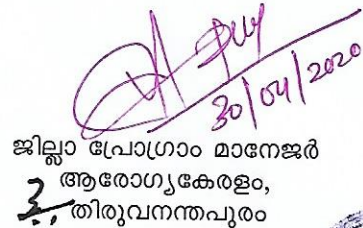 30/04/2020
ജില്ലാ പ്രോഗ്രാം മാനേജർ
ആരോഗ്യകേരളം,
തിരുവനന്തപുരം